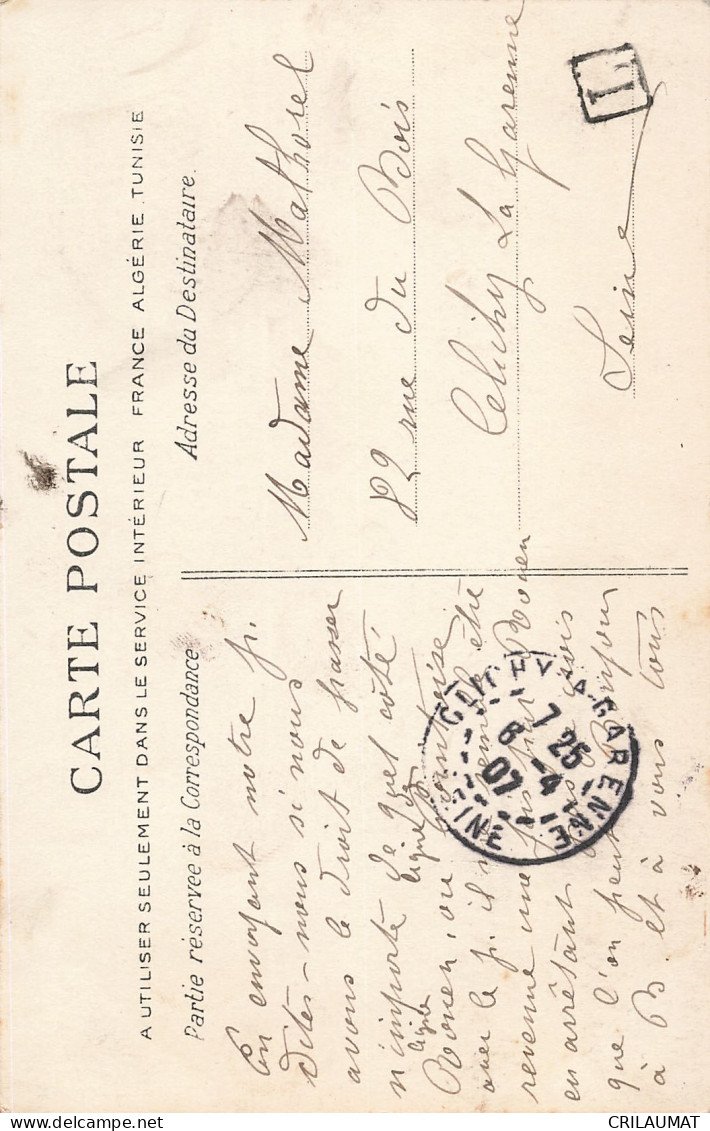 CARTE POSTALE
A UTILISER SEULEMENT DANS LE SERVICE INTÉRIEUR FRANCE ALGÉRIE TUNISIE
Partie réservée à la Correspondance
En envoyant notre
Dites-nous si nous
avons le droit de passer
n'importe de quel côté
ligne ligne de
Rouen, ou Pontoise
avec le il
revenu une fois par Rouen
en arrêtant bois
que l'on peut Bonjour
à B et à vous tous
Adresse du Destinataire.
Madame Mathorel
82 rue du Bois
Clichy La Garenne
Seine
L
CLICHY-LA-GARENNE
SEINE
7 25
6 -4
07
CRILAUMAT